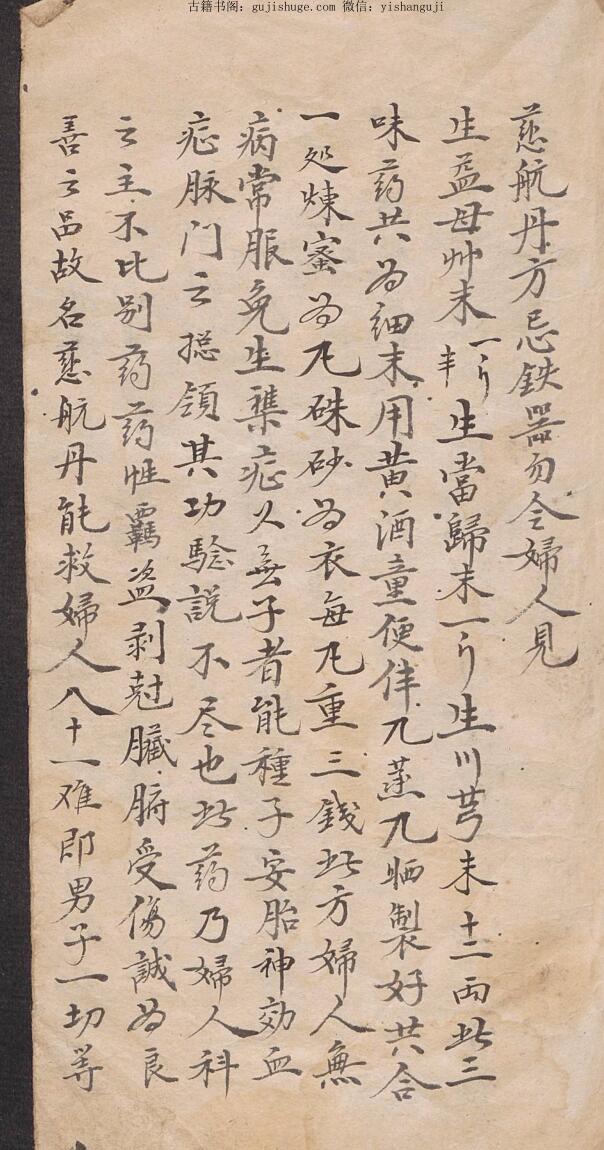 古籍书阁：gujishuge.com 微信：yishanguji
慈航丹方忌鉄器勿令婦人見
生益母艸末一斤半生當歸末一斤生川芎末十二兩此三
味药共為細末用黄酒童便伴九蒸九晒製好共合
一処煉蜜為丸硃砂為衣每丸重三錢此方婦人無
病常服免生襍症久無子者能種子安胎神効血
症脉门之捴領其功驗説不尽也此药乃婦人科
之主不比别药药性霸盗剥尅臟腑受傷誠為良
善之品故名慈航丹能救婦人八十一难即男子一切等